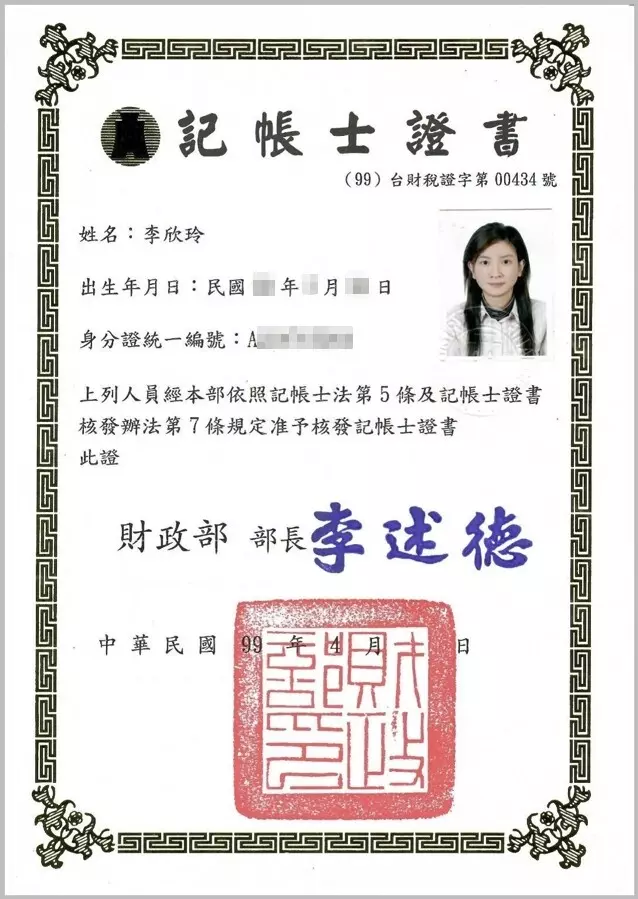 記帳士證書
（99）台財稅證字第00434號
姓名：李欣玲
出生年月日：民國 年 月 日
身分證統一編號：A
上列人員經本部依照記帳士法第5條及記帳士證書
核發辦法第7條規定准予核發記帳士證書
此證
財政部 部長李述德
中華民國 99 年 4 月 日
財政部印